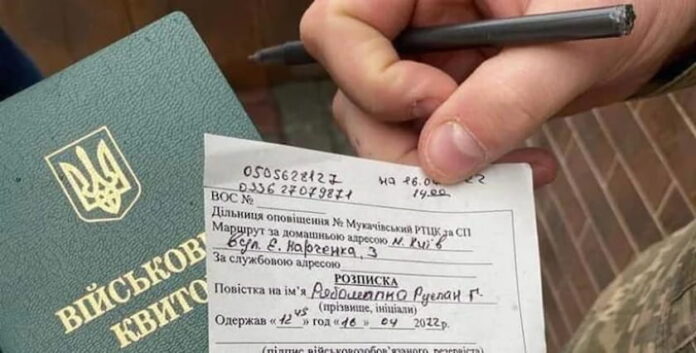 ВІЙСЬКОВ
КВИТО
0505628127 на 16.04
14.00
ВОС №
Дільниця оповіщення № Мукачівський РТЦК та СП
Маршрут за домашньою адресою м. Київ
вул. Є. Харченка, 3
За службовою адресою
РОЗПИСКА
Повістка на ім'я Руслан Г.
(прізвище, ініціали)
Одержав «12 45» год «16» 04 2022г.
(підпис військовозобов'язаного, резервіста)